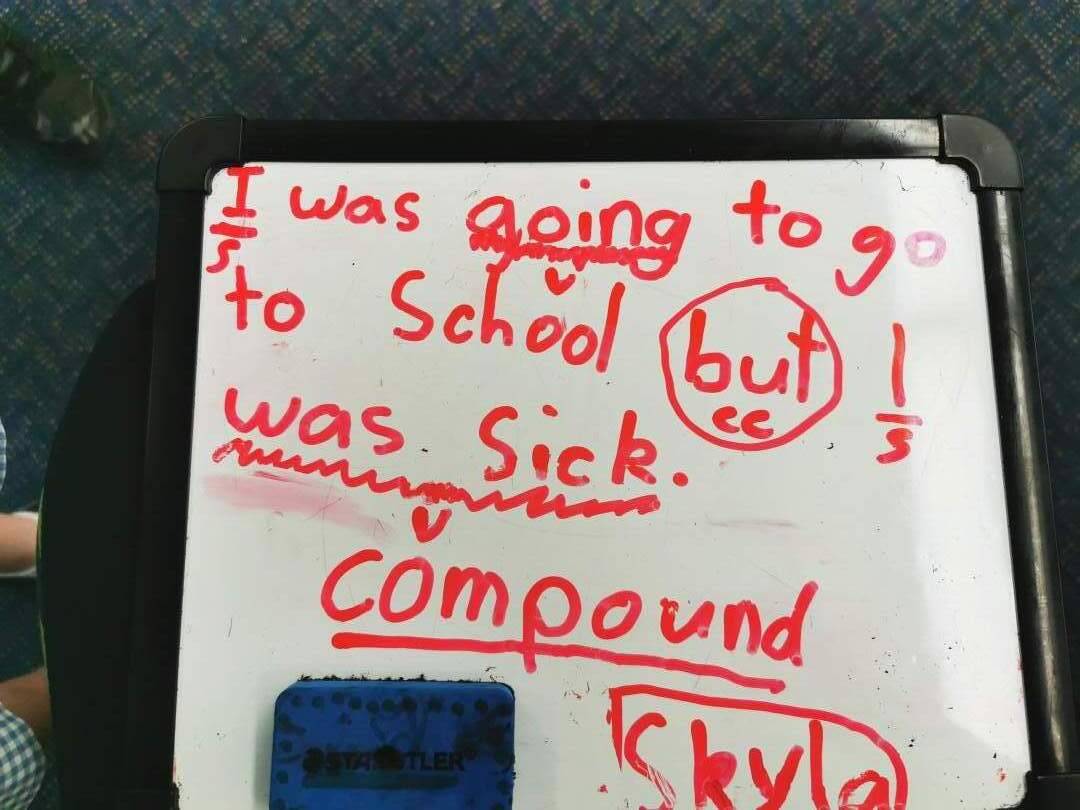 I was going to go
s
v
to School but I
cc s
was Sick.
v
Compound
STAEDTLER
Skyla